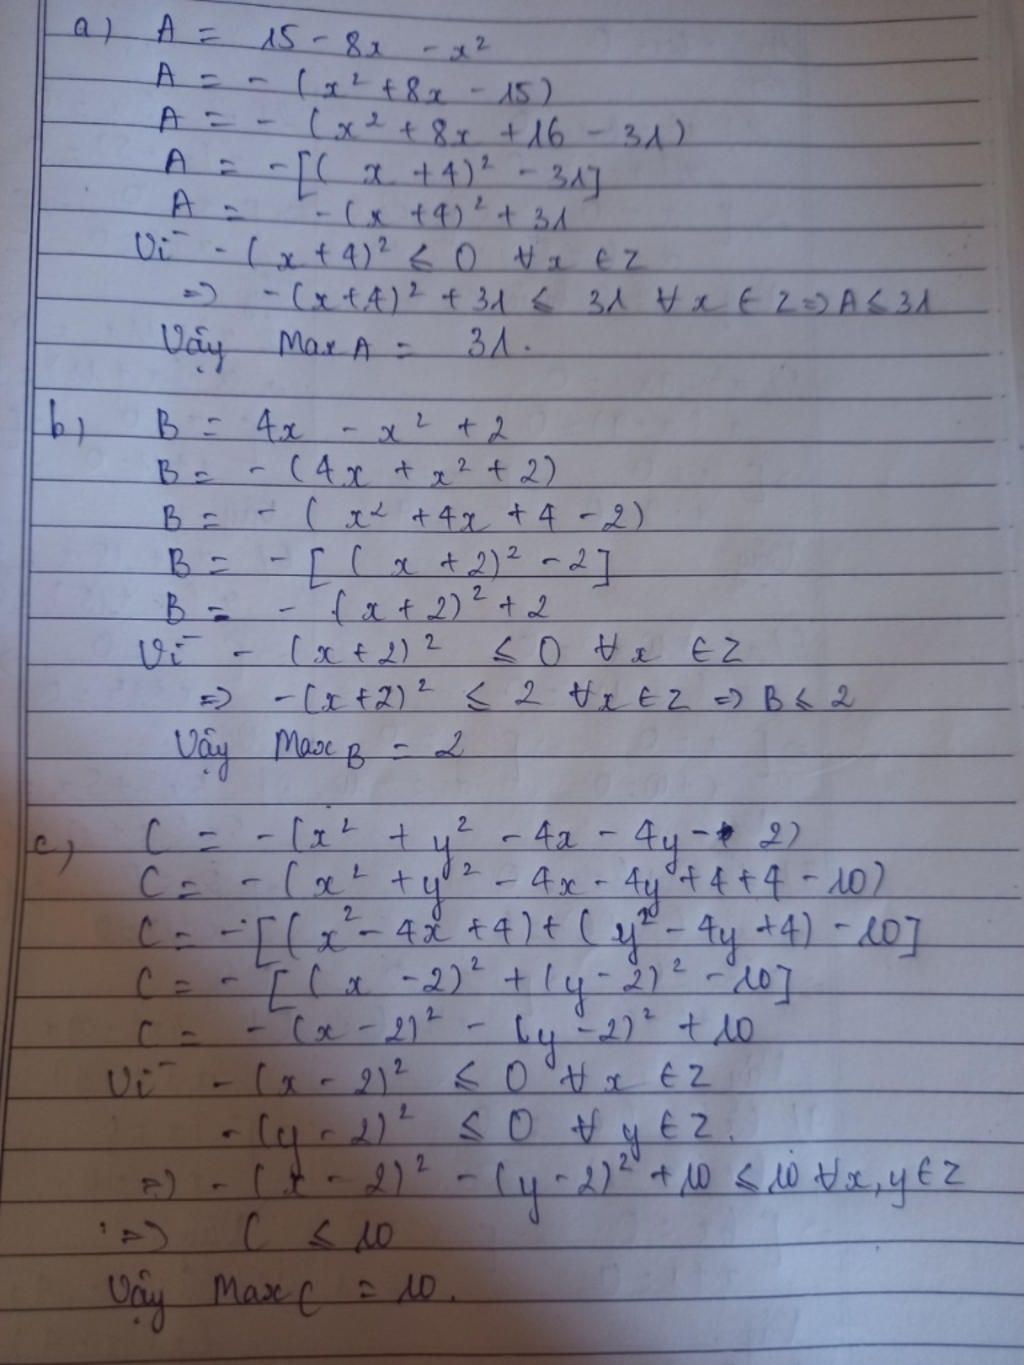 a) A = 15 - 8x - x²
A = - (x² + 8x - 15)
A = - (x² + 8x + 16 - 31)
A = - [(x + 4)² - 31]
A = - (x + 4)² + 31
Vì - (x + 4)² ≤ 0 ∀x ∈ Z
=> - (x + 4)² + 31 ≤ 31 ∀x ∈ Z => A ≤ 31
Vậy Max A = 31.
b) B = 4x - x² + 2
B = - (4x + x² + 2)
B = - (x² + 4x + 4 - 2)
B = - [(x + 2)² - 2]
B = - (x + 2)² + 2
Vì - (x + 2)² ≤ 0 ∀x ∈ Z
=> - (x + 2)² ≤ 2 ∀x ∈ Z => B ≤ 2
Vậy Max B = 2
c) C = - (x² + y² - 4x - 4y - 2)
C = - (x² + y² - 4x - 4y + 4 + 4 - 10)
C = - [(x² - 4x + 4) + (y² - 4y + 4) - 10]
C = - [(x - 2)² + (y - 2)² - 10]
C = - (x - 2)² - (y - 2)² + 10
Vì - (x - 2)² ≤ 0 ∀x ∈ Z
- (y - 2)² ≤ 0 ∀y ∈ Z.
=> - (x - 2)² - (y - 2)² + 10 ≤ 10 ∀x, y ∈ Z
=> C ≤ 10
Vậy Max C = 10.